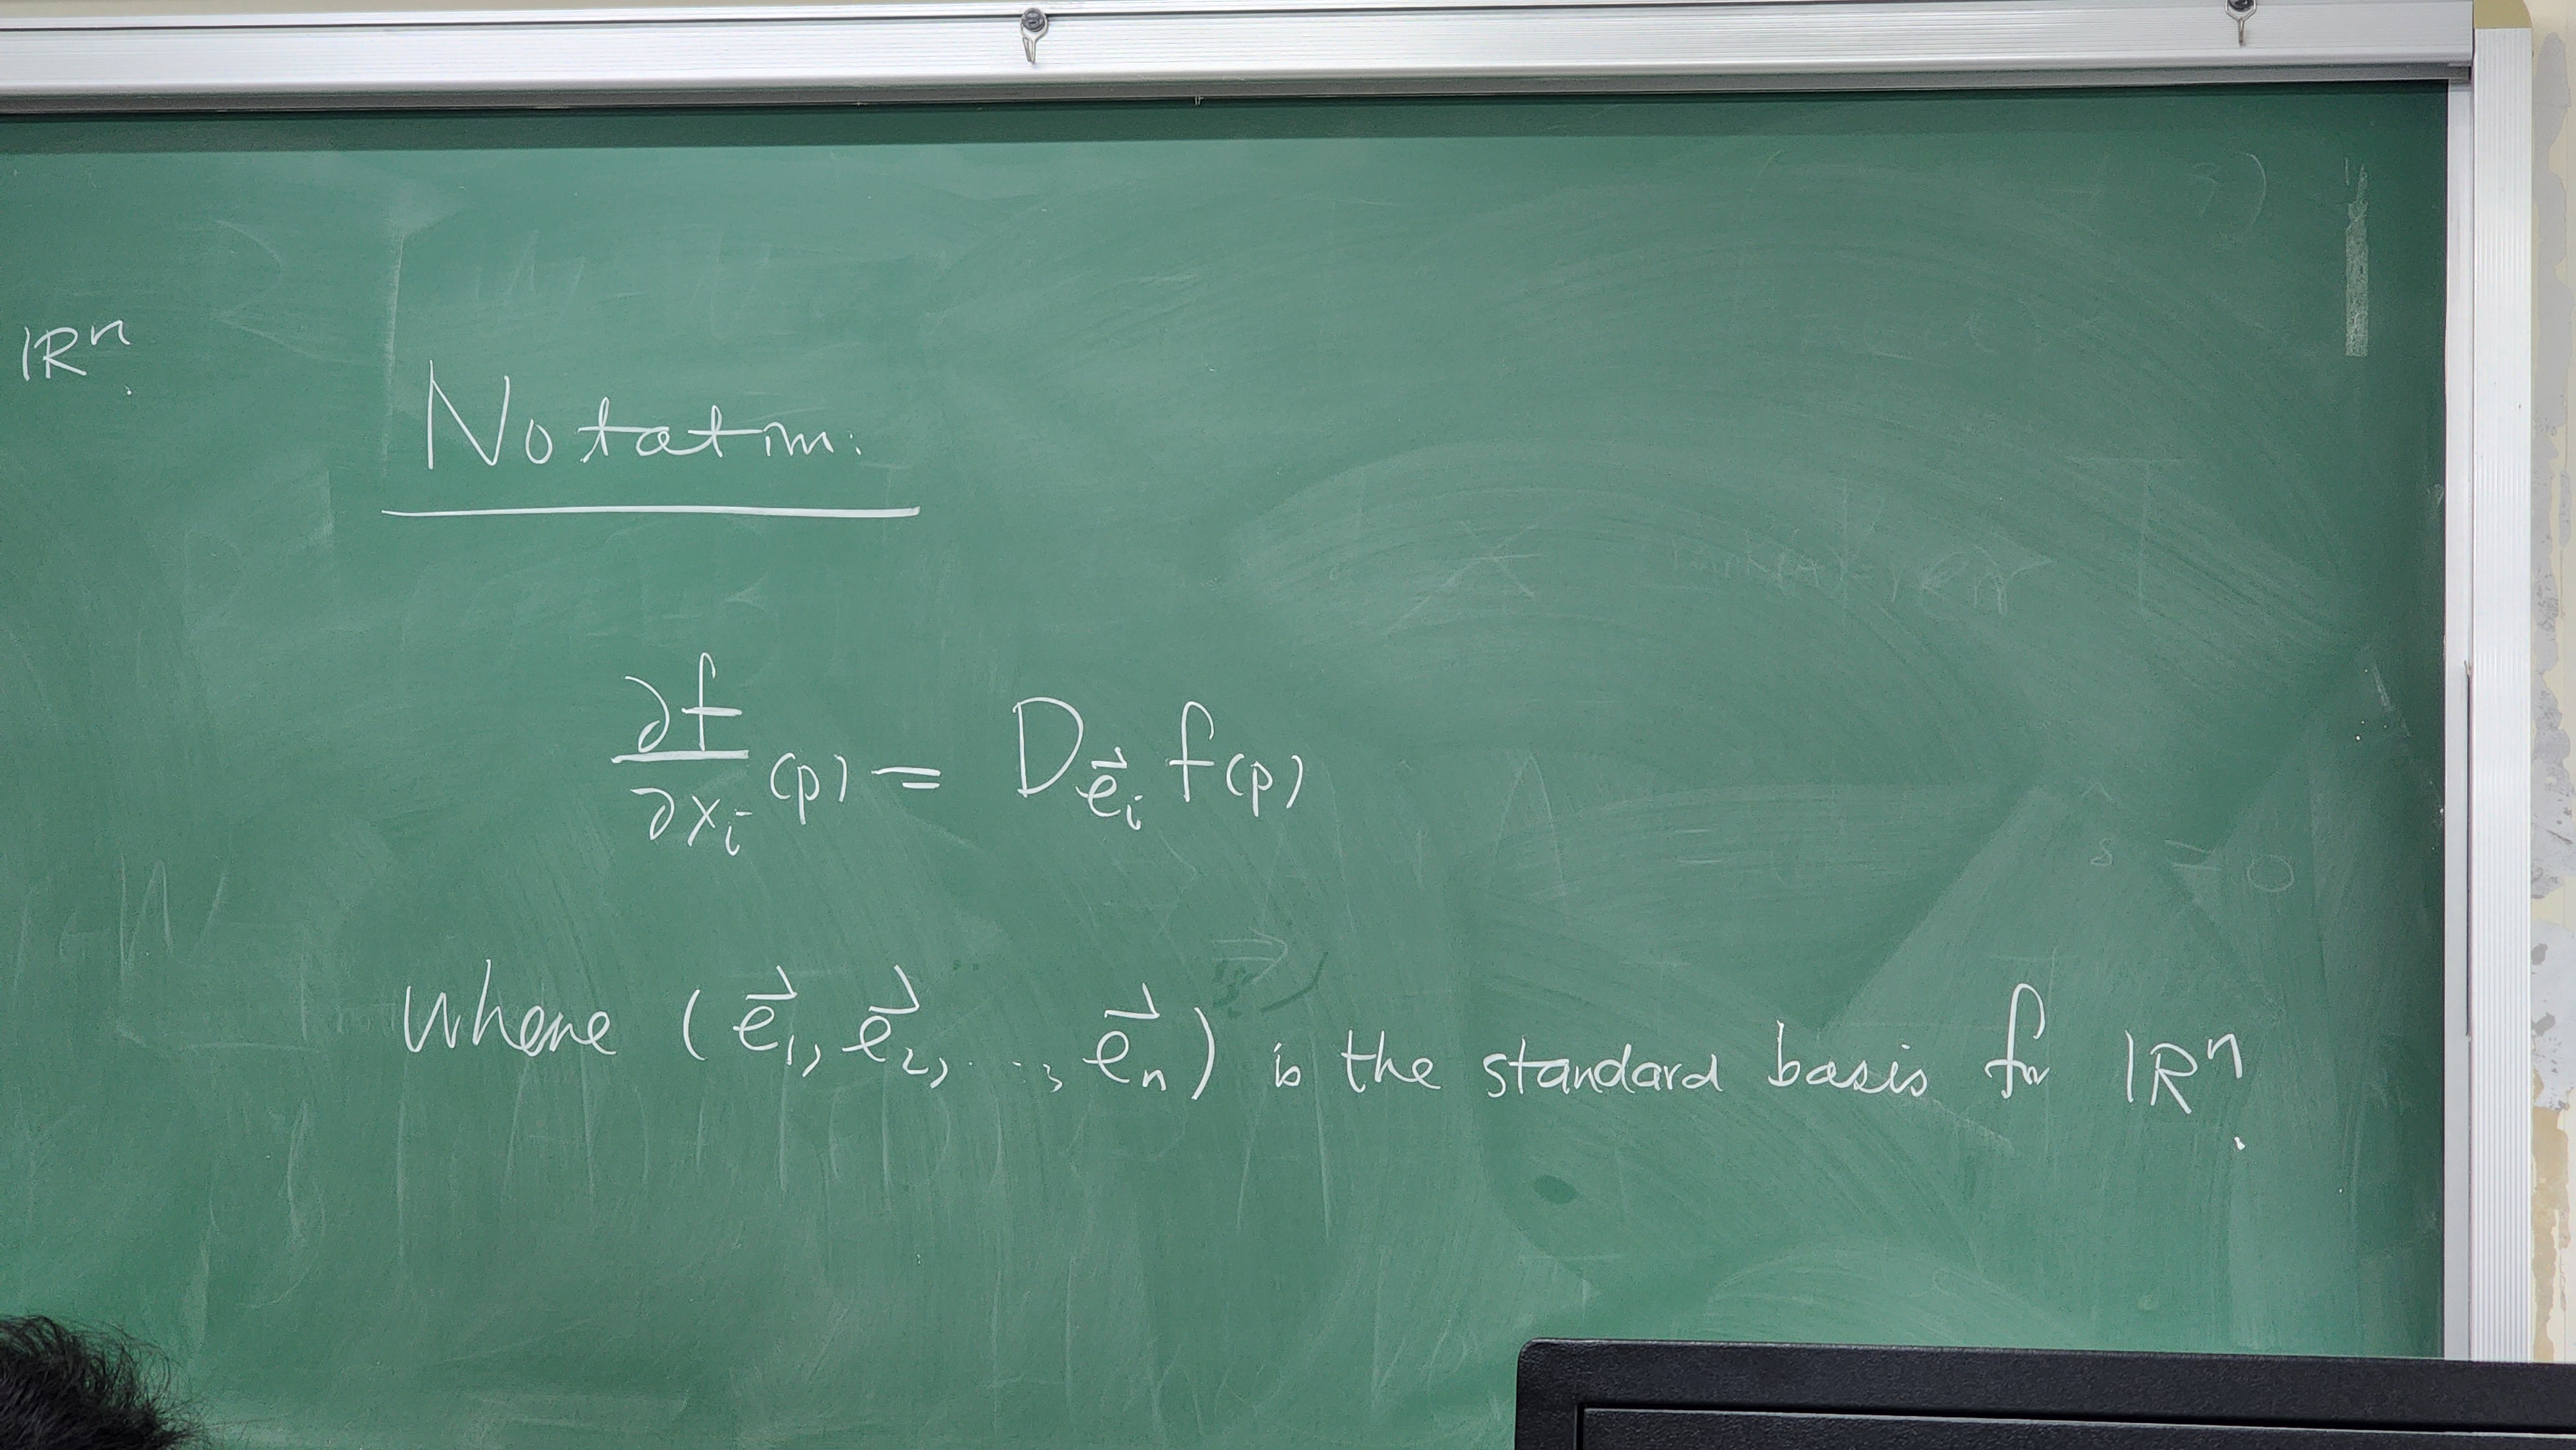 ℝⁿ.
Notation:
∂f/∂xᵢ (p) = D_{\vec{e}_i} f(p)
where (\vec{e}_1, \vec{e}_2, ..., \vec{e}_n) is the standard basis for ℝⁿ.